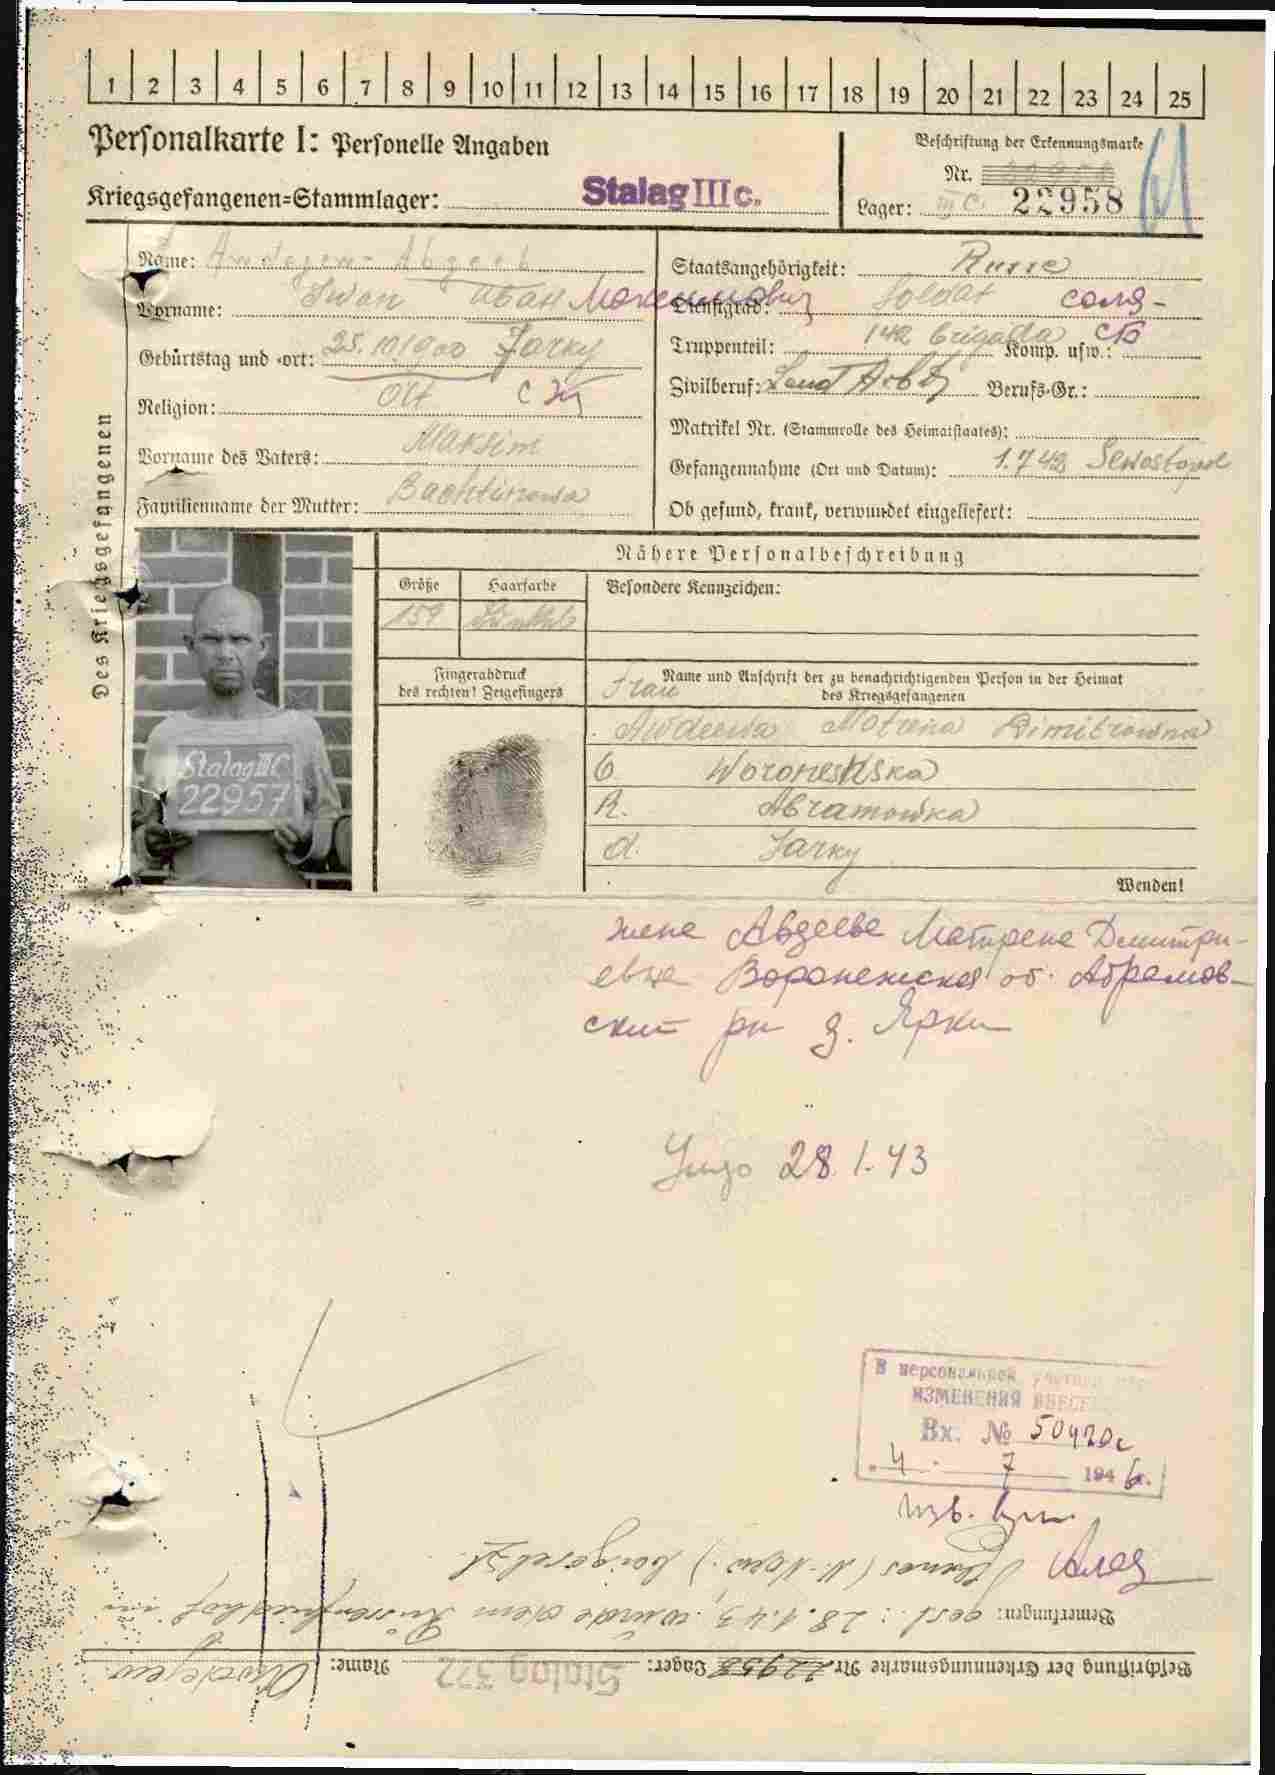 1 2 3 4 5 6 7 8 9 10 11 12 13 14 15 16 17 18 19 20 21 22 23 24 25
Personalkarte I: Personelle Angaben
Beschriftung der Erkennungsmarke
Nr.
Kriegsgefangenen=Stammlager: Stalag III c.
Lager: III C. 22958
Des Kriegsgefangenen
Name: Авдеев
Vorname: Iwan Иван Максимович
Geburtstag und =ort: 25.10.1900 Jarky
Religion:
Vorname des Vaters: Maksim
Familienname der Mutter: Bachtinowa
Staatsangehörigkeit: Russe
Dienstgrad: Soldat солд-
Truppenteil: 142 brigada Komp. usw.:
Zivilberuf: Berufs=Gr.:
Matrikel Nr. (Stammrolle des Heimatstaates):
Gefangennahme (Ort und Datum): 1.7 42 Sewastopol
Ob gesund, krank, verwundet eingeliefert:
Nähere Personalbeschreibung
Größe Haarfarbe Besondere Kennzeichen:
159
Stalag III C
22957
Fingerabdruck
des rechten! Zeigefingers
Name und Anschrift der zu benachrichtigenden Person in der Heimat
des Kriegsgefangenen
Frau
Awdeewa Motrena Dimitrowna
O. Woroneskska
R. Abramowka
d. Jarky
Wenden!
жене Авдееве Матрене Дмитри-
евне Воронежская об. Абрамов-
ский рн д. Ярки
28.1.43
В персональной учетной
ИЗМЕНЕНИЯ ВНЕСЕ
Вх. № 50420с
"4 " 7 1946г.
Bemerkungen: gest. 28.1.43, wurde dem Russenfriedhof in
beigesetzt.
Beschriftung der Erkennungsmarke Nr. 22958 Lager: Stalag 322 Name: Awdejew